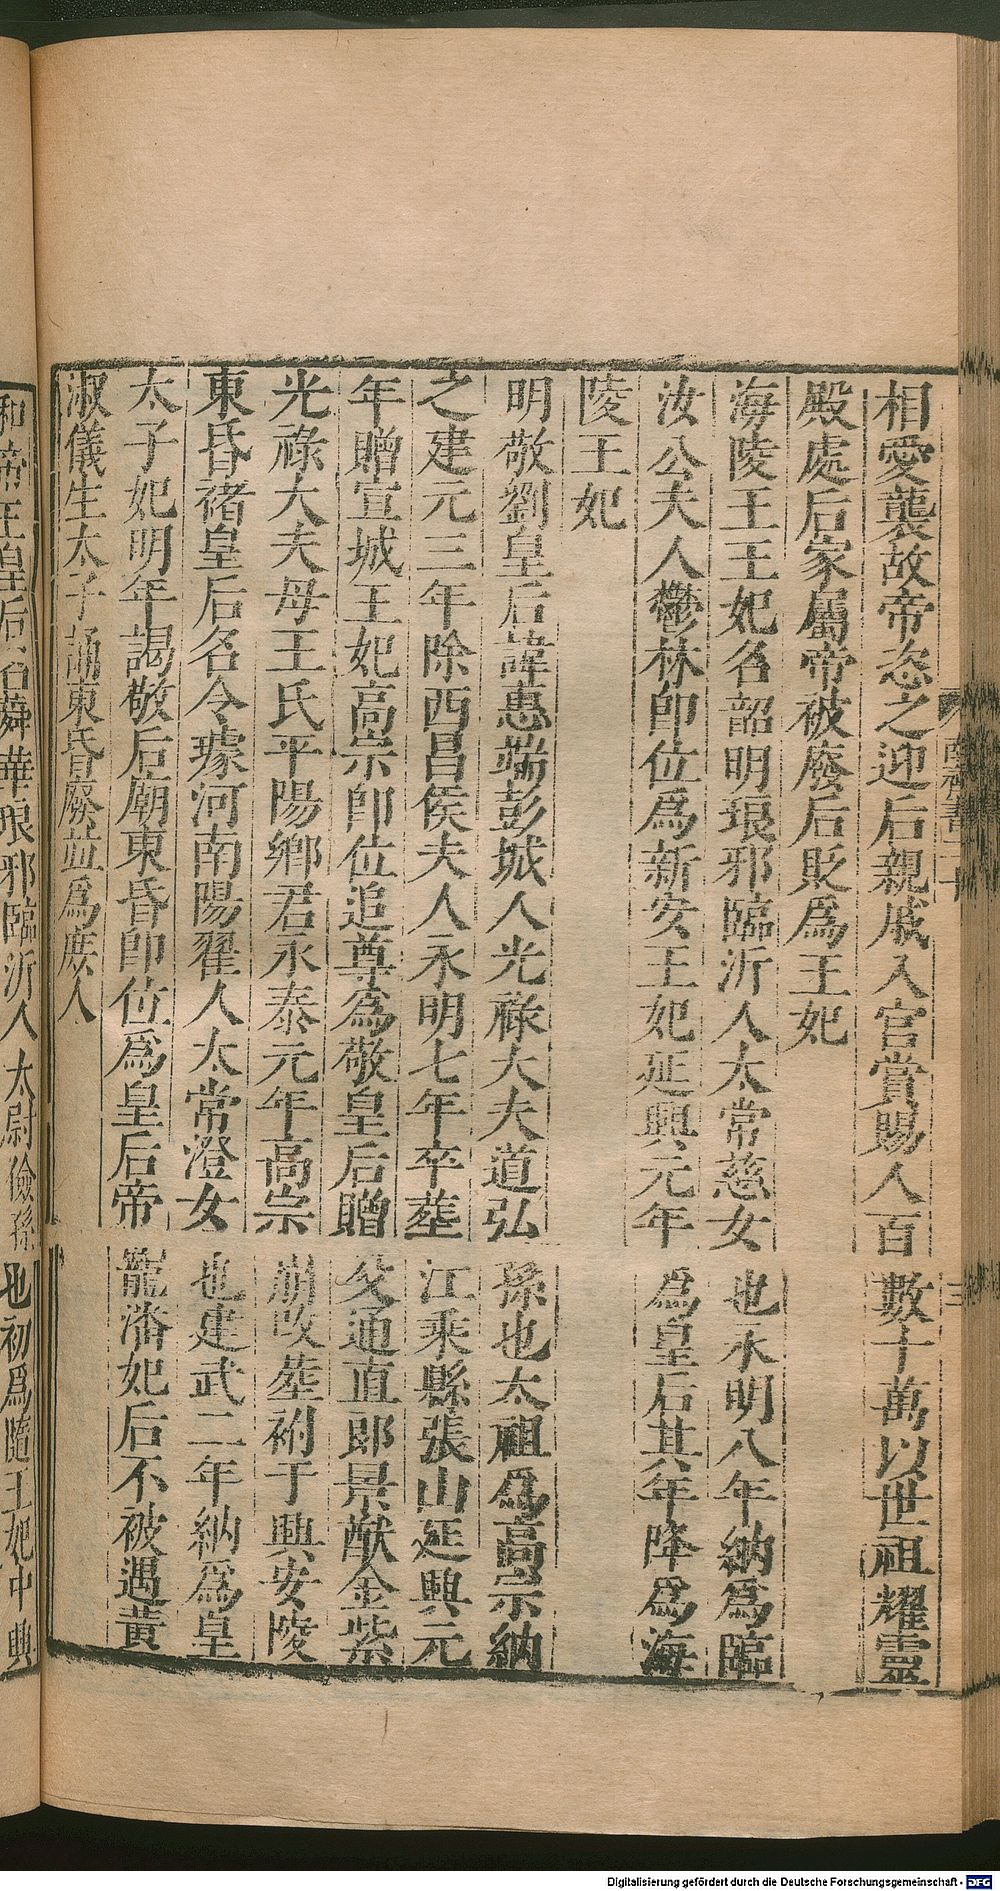 相愛襲故帝恣之迎后親戚入宫賞賜人百數十萬以世祖耀靈
殿處后家屬帝被廢后貶爲王妃
海陵王王妃名韶明琅邪臨沂人太常慈女也永明八年納爲臨
汝公夫人鬱林即位爲新安王妃延興元年爲皇后其年降爲海
陵王妃
明敬劉皇后諱惠端彭城人光祿大夫道弘孫也太祖爲高宗納
之建元三年除西昌侯夫人永明七年卒葬江乘縣張山延興元
年贈宣城王妃高宗即位追尊爲敬皇后贈父通直郎景猷金紫
光祿大夫母王氏平陽鄉君永泰元年高宗崩改葬祔于興安陵
東昏褚皇后名令璩河南陽翟人太常澄女也建武二年納爲皇
太子妃明年謁敬后廟東昏即位爲皇后帝寵潘妃后不被遇黄
淑儀生太子誦東昏廢並爲庶人
和帝王皇后名蕣華琅邪臨沂人太尉儉孫也初爲隨王妃中興
Digitalisierung gefördert durch die Deutsche Forschungsgemeinschaft - DFG